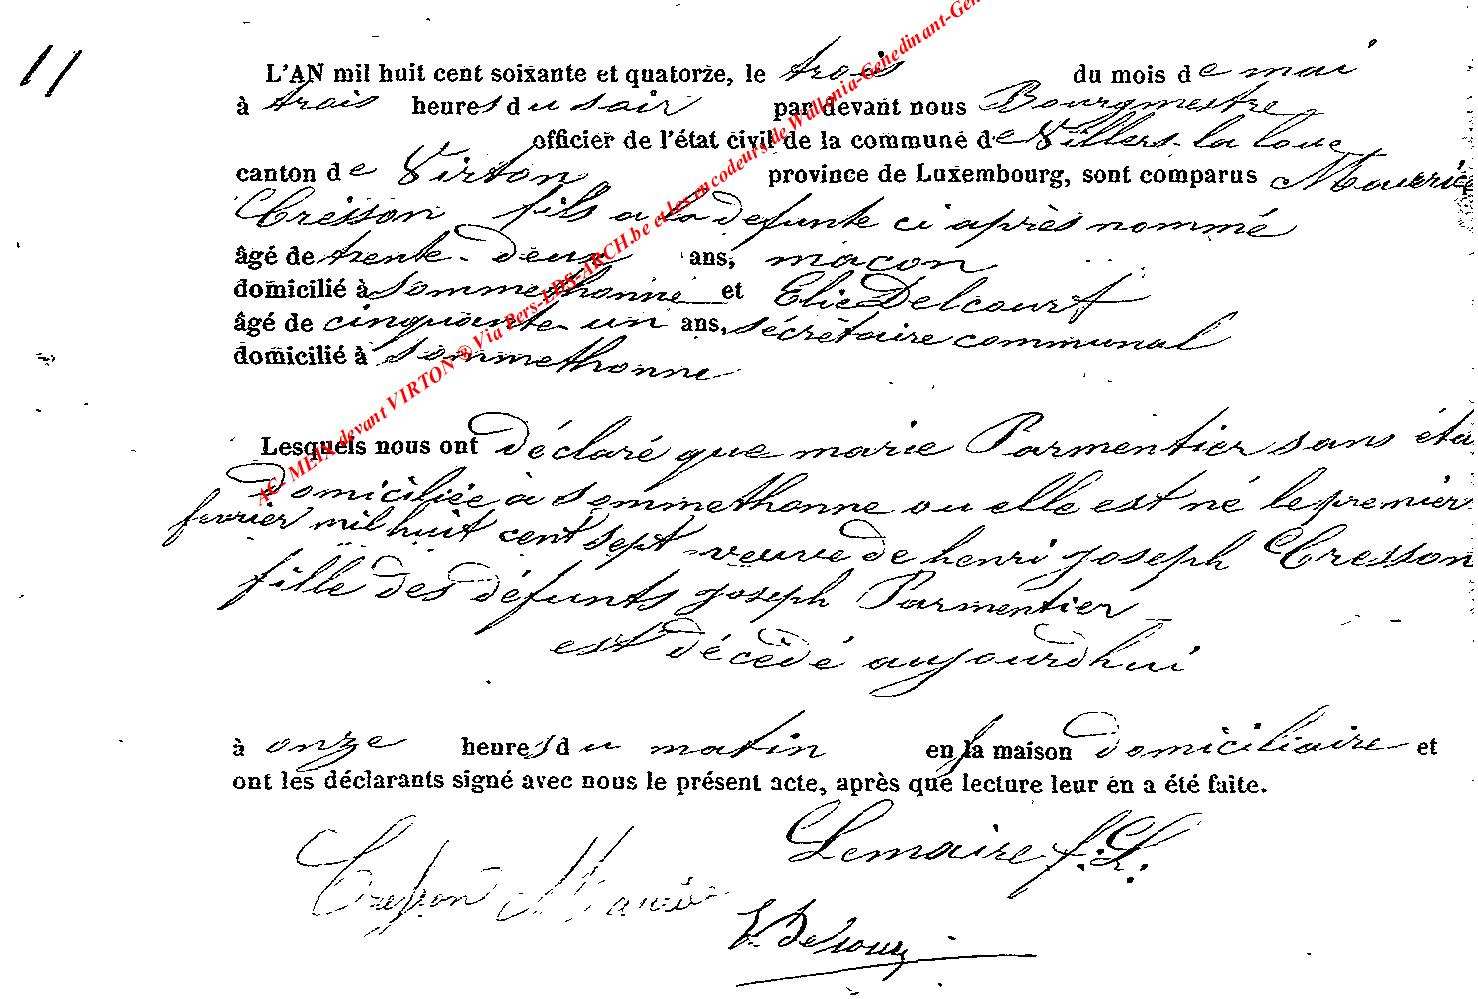 11
L'AN mil huit cent soixante et quatorze, le trois du mois de mai
à trois heures du soir par devant nous Bourgmestre
officier de l'état civil de la commune de Villers-la loue
canton de Virton province de Luxembourg, sont comparus Maurice
Cresson fils a la defunte ci après nommé
âgé de trente-deux ans, macon
domicilié à Sommethonne et Elie Delcourt
âgé de cinquante-un ans, sécrètaire communal
domicilié à Sommethonne
Lesquels nous ont déclaré que marie Parmentier sans éta
domiciliée à Sommethonne ou elle est né le premier
fevrier mil huit cent sept veuve de henri joseph Cresson
fille des défunts joseph Parmentier
est décédé aujourdhui
à onze heures du matin en la maison domiciliaire et
ont les déclarants signé avec nous le présent acte, après que lecture leur en a été faite.
Lemaire f.L.
Cresson Mauri
E. Delcour
AC MEIX devant VIRTON ® Via Pers-LDS-ARCH.be et les encodeurs de Wallonia-Genedinant-Gen